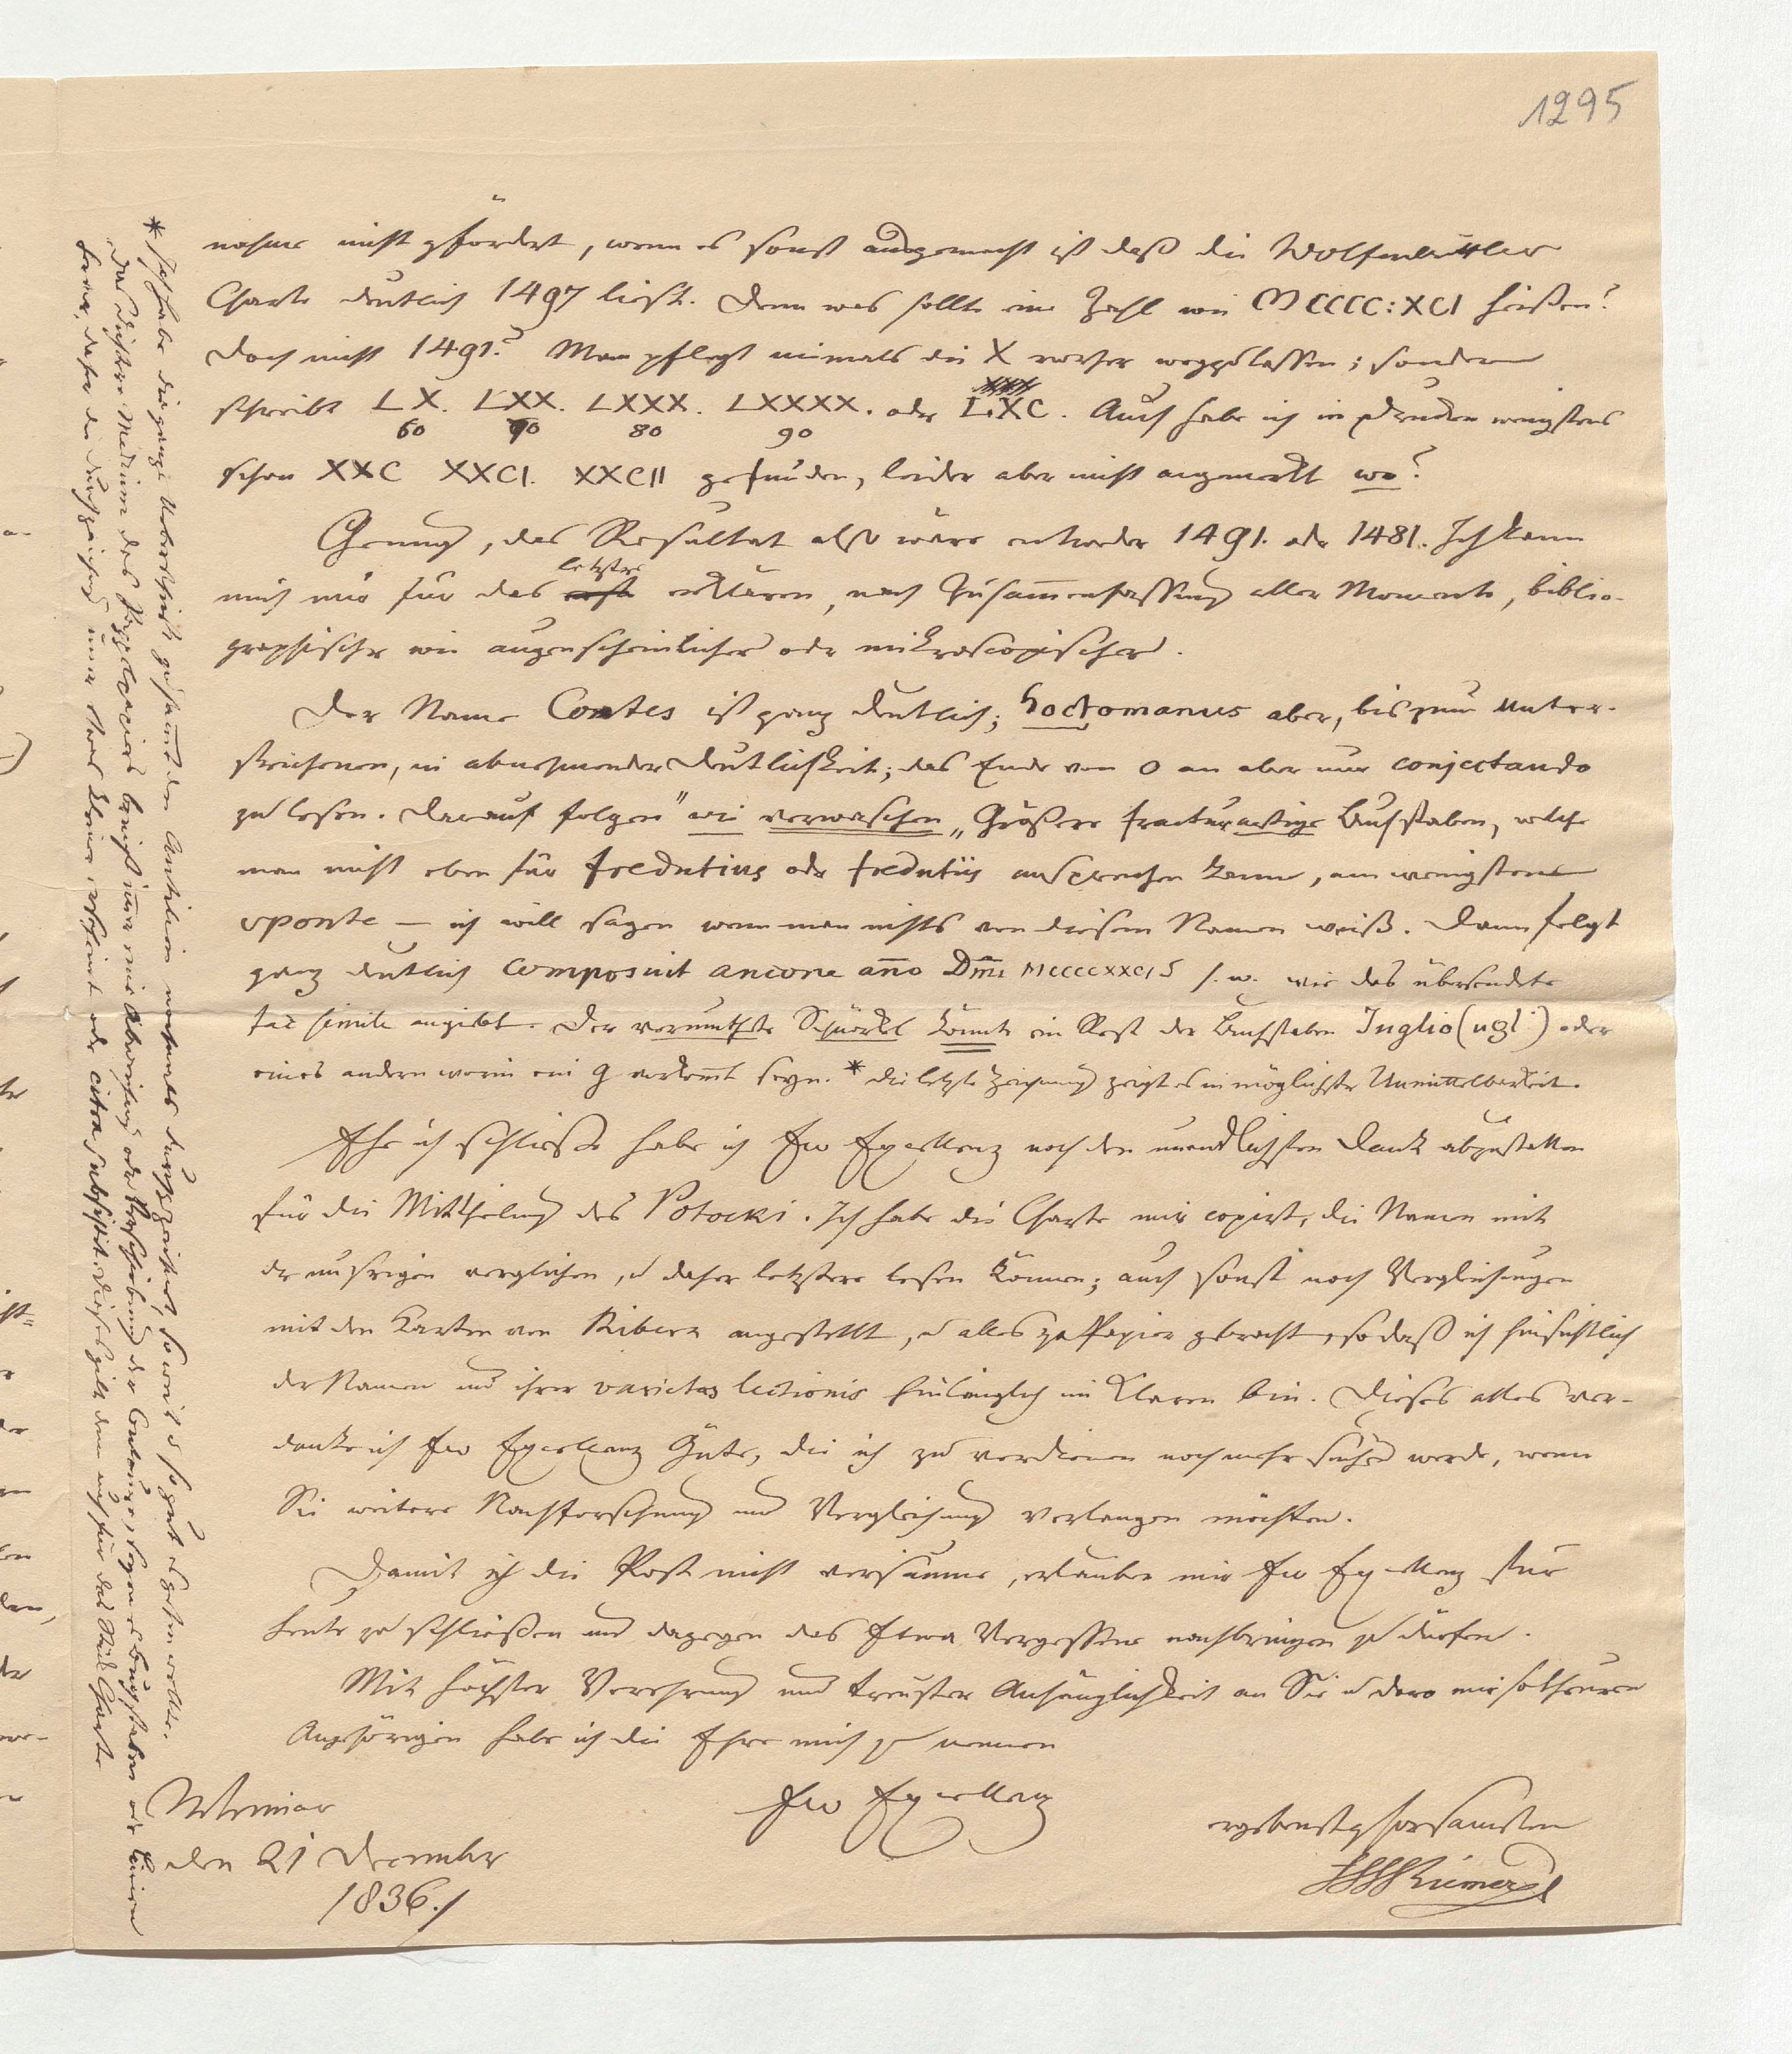 1295
nahme nicht gefördert, wenn es sonst ausgemacht ist daß die Wolfenbüttler
Charte deutlich 1497 liest. Denn was sollte eine Zahl wie MCCCC:XCI heißen?
doch nicht 1491? Man pflegt niemals die X vorher wegzulassen; sondern
schreibt LX. LXX. LXXX. LXXXX. oder LXC. Auch habe ich in Drucken wenigstens
60 70 80 90
schon XXC XXCI. XXCII gefunden, leider aber nicht angemerkt wo?
Genug, das Resultat also wäre entweder 1491. oder 1481. Ich kann
letztere
mich nur für das erste erklären, nach Zusammenfassung aller Momente, biblio-
graphischer wie augenscheinlicher oder mikroscopischer.
Der Name Contes ist ganz deutlich; hoctomanus aber, bis zum Unter-
strichenen, in abnehmender Deutlichkeit; das Ende von o an aber nur conjectando
zu lesen. Darauf folgen "wie verwaschen„ Größere fracturartige Buchstaben, welche
man nicht eben für fredutius oder fredutiis ansprechen kann, am wenigsten
vponte — ich will sagen wenn man nichts von diesem Namen weiß. Dann folgt
ganz deutlich composuit ancone año Dm̄i MCCCCXXCIS s. w. wie das übersendete
fac simile angiebt. Der vermuthete Schnörkel könnte ein Rest der Buchstaben Inglio (ugl:) oder
eines andern worin ein g vorkommt seyn. * die letzte Zeichnung zeigt es in möglichster Unmittelbarkeit.
Ehe ich schließe habe ich Ew Excellenz noch den unendlichsten Dank abzustatten
für die Mittheilung des Potocki. Ich habe die Charte mir copirt, die Namen mit
der unsrigen verglichen, u daher letztere lesen können; auch sonst noch Vergleichungen
mit den Karten von Ribera angestellt, u alles zu Papier gebracht, so daß ich hinsichtlich
der Namen und ihrer varietas lectionis hinlänglich im Klaren bin. Dieses alles ver-
danke ich Ew Excellenz Güte, die ich zu verdienen noch mehr suchen werde, wenn
Sie weitere Nachforschung und Vergleichung verlangen möchten.
Damit ich die Post nicht versäume, erlauben mir Ew Excellenz für
heute zu schließen und dagegen das Etwa Vergessene nachbringen zu dürfen.
Mit höchster Verehrung und treuster Anhänglichkeit an Sie u dero mir so theuren
Angehörigen habe ich die Ehre mich zu nennen
Ew Excellenz
ergebenst gehorsamsten
Riemer
Weimar
den 21 December
1836./
* Ich habe die ganze Unterschrift zusammt den Antillen nochmals durchgezeichnet, so weit u so gut es gehen wollte.
das dichtere Medium des Papiers bringt immer eine Abweichung oder Verschiebung der Contoure, seyen es Buchstaben oder Linien
hervor, daher die Durchzeichnung immer etwas kleiner erscheint oder citra subsistit. Dieses gilt denn auch für das Stück Charte